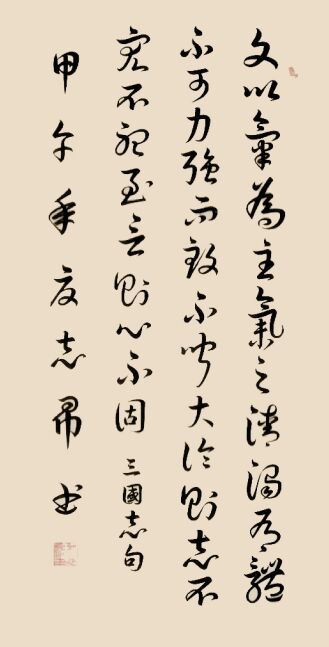 文以氣為主氣之清濁有體
不可力強而致不聞大論則志不
宏不聽至言則心不固 三國志句
甲午年夏志書